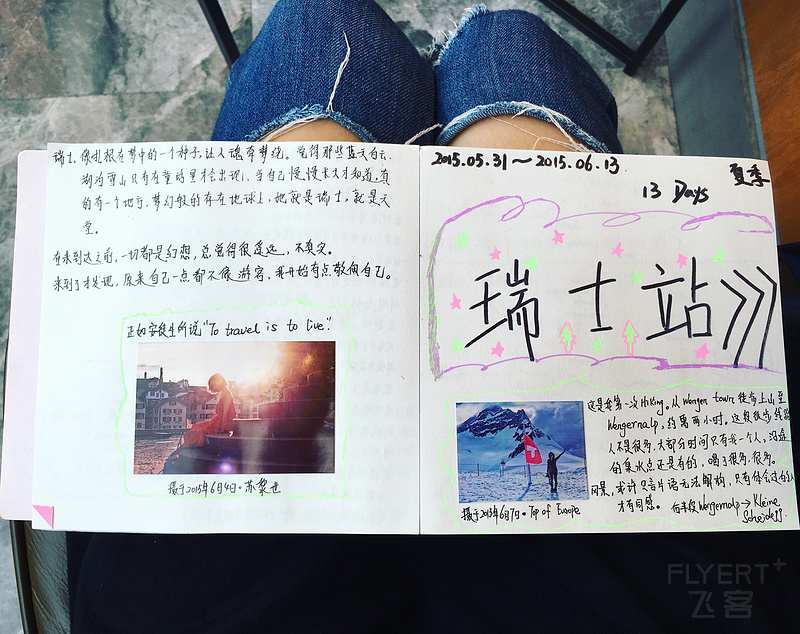 瑞士,像扎根在梦中的一个种子,让人魂牵梦绕。觉得那些蓝天白云、
湖泊雪山只有在童话里才会出现,当自己慢慢长大才知道,真
的有一个地方,梦幻般的存在地球上,她就是瑞士,就是天
堂。
在未到达之前,一切都是幻想,总觉得很遥远,不真实。
来到了才发现,原来自己一点都不像游客,我开始有点敬佩自己。
正如安徒生所说"To travel is to live".
摄于2015年6月4日。苏黎世
2015.05.31~2015.06.13
夏季
13 Days
瑞士站
这是我第一次Hiking。从Wengen town徒步上山至
Wengernalp,约莫两小时。这段徒步线路
人不是很多,大部分时间只有我一个人,沿途
的泉水点还是有的,喝了很多很多。
风景,或许只言片语无法解构,只有体会过的人
才有同感。 后半段Wengernalp→Kleine
Scheidegg.
摄于2015年6月7日。Top of Europe
FLYERT+
飞客